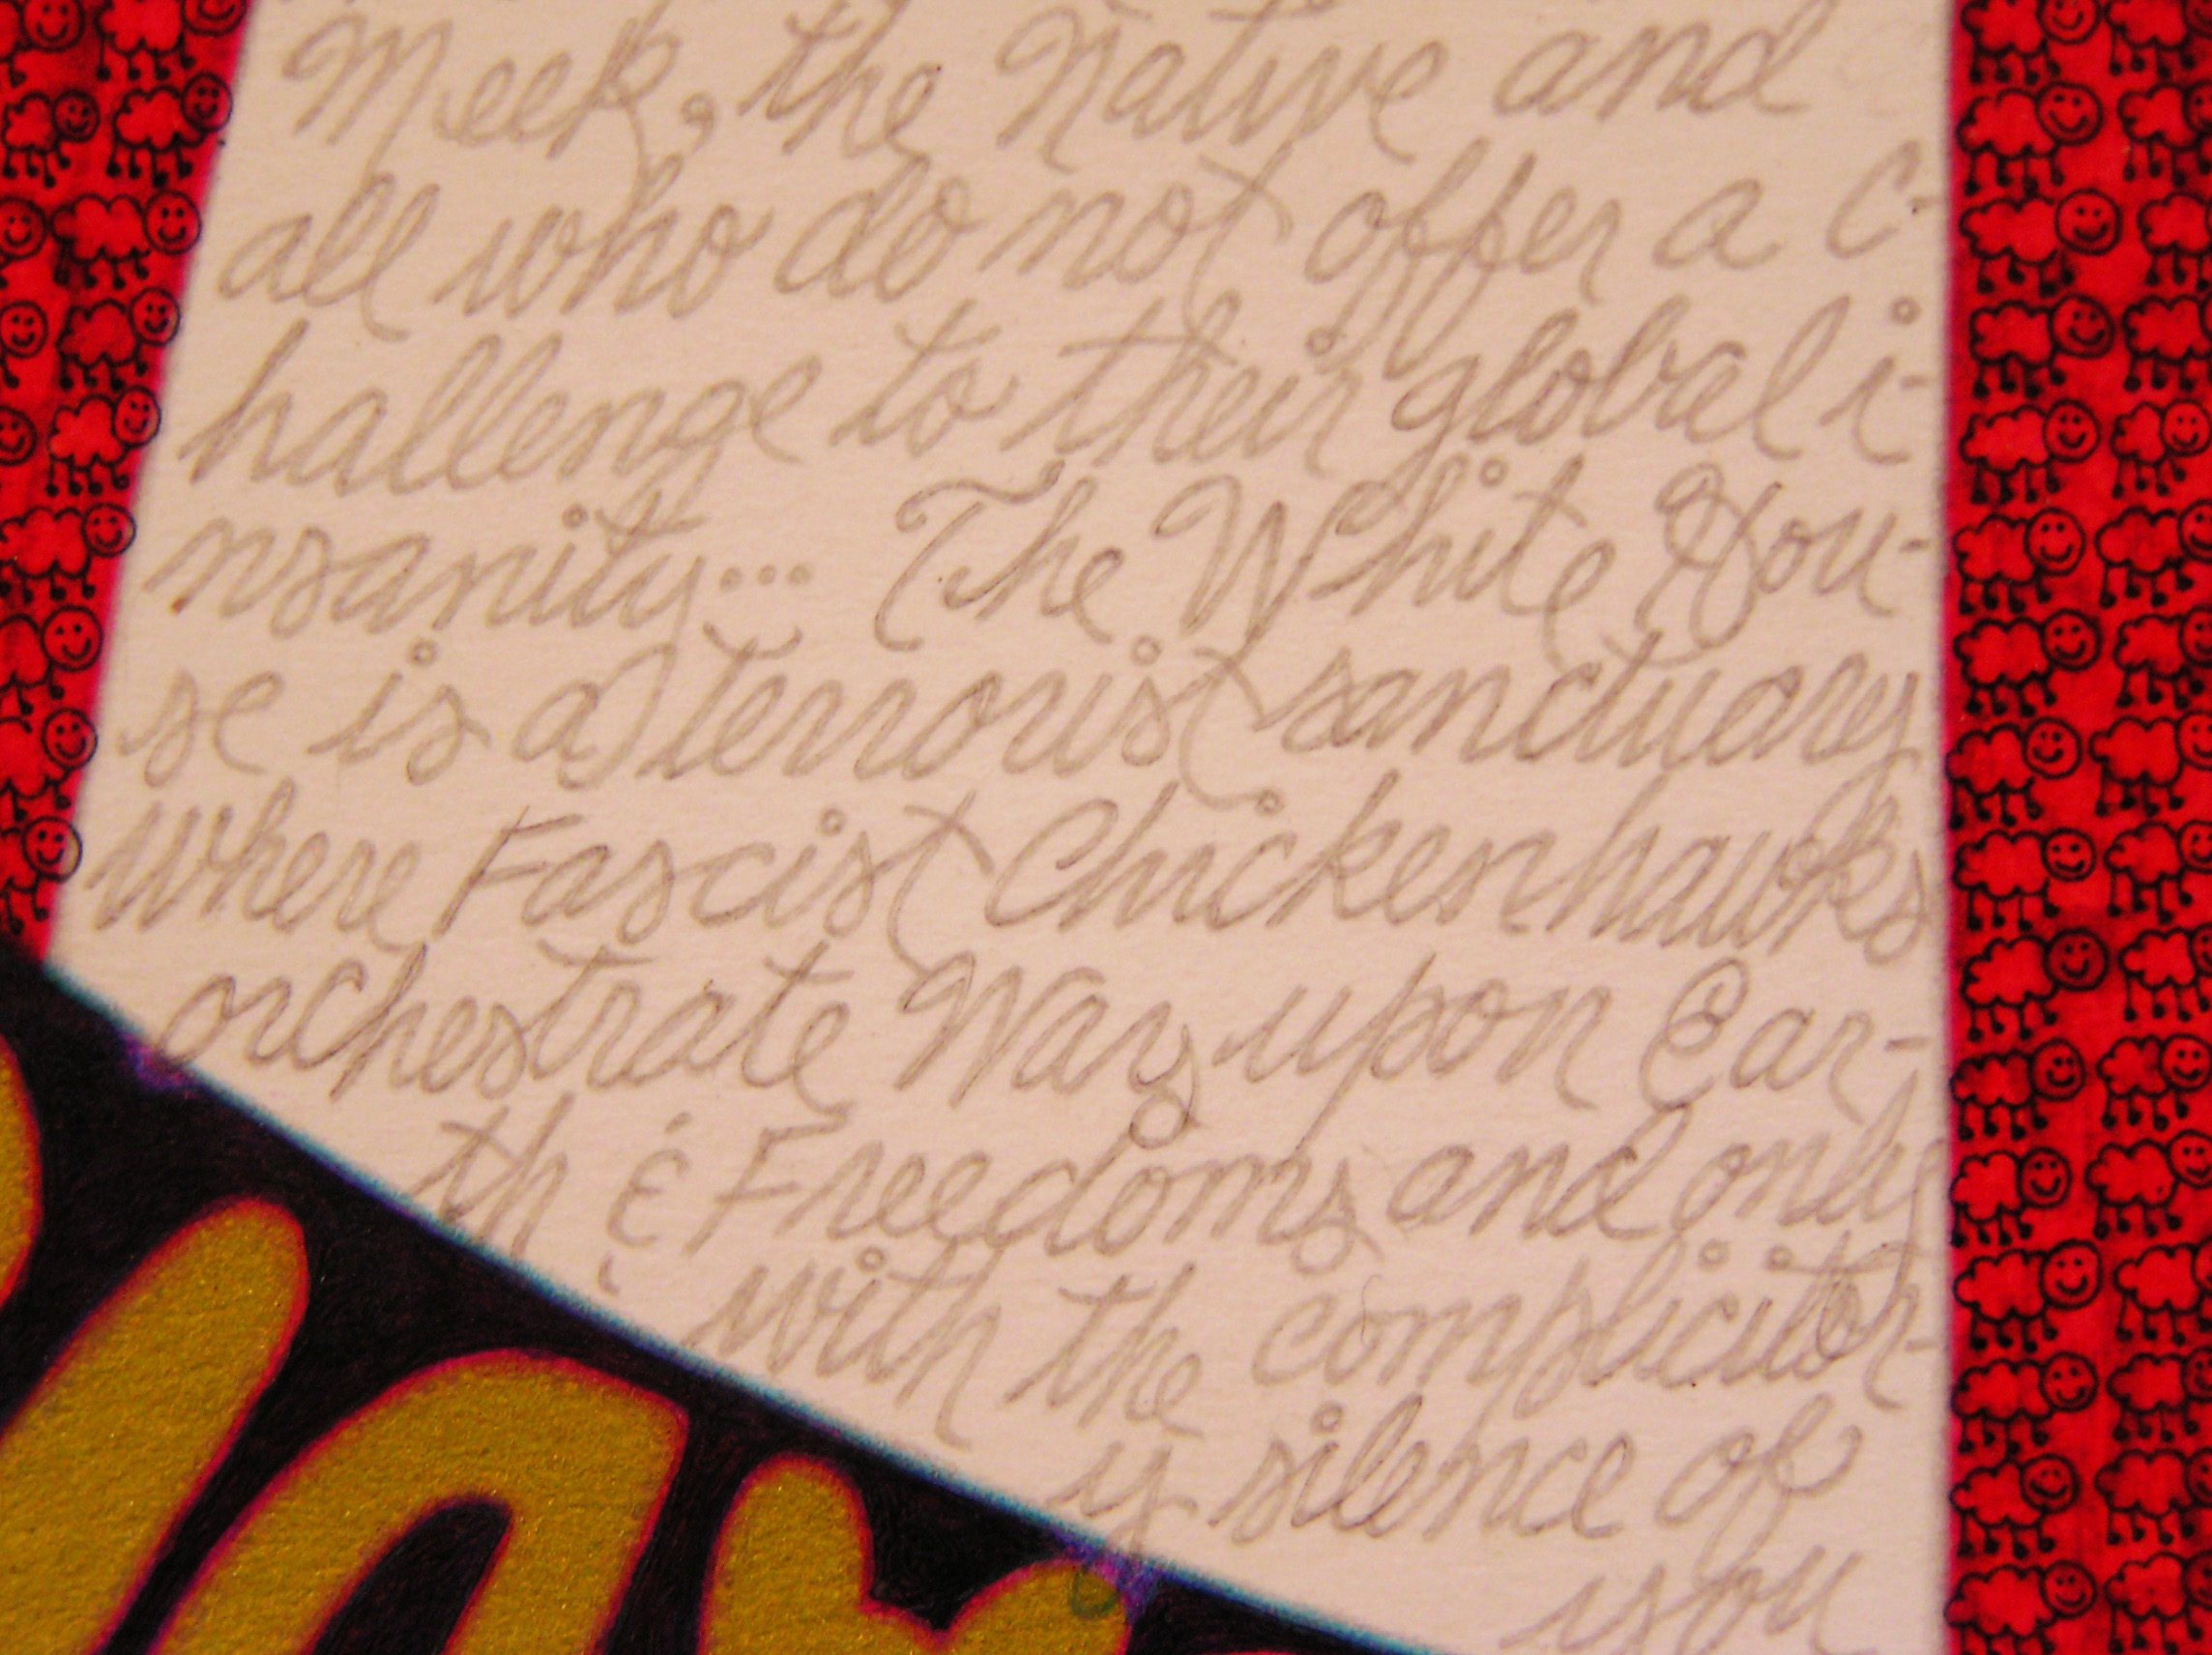 Meek, the Native and
all who do not offer a c-
hallenge to their global i-
nsanity... The White Hou-
se is a Terrorist sanctuary
where Fascist Chickenhawks
orchestrate Wars upon Ear-
th & Freedoms and only
with the complicitor-
y silence of
you